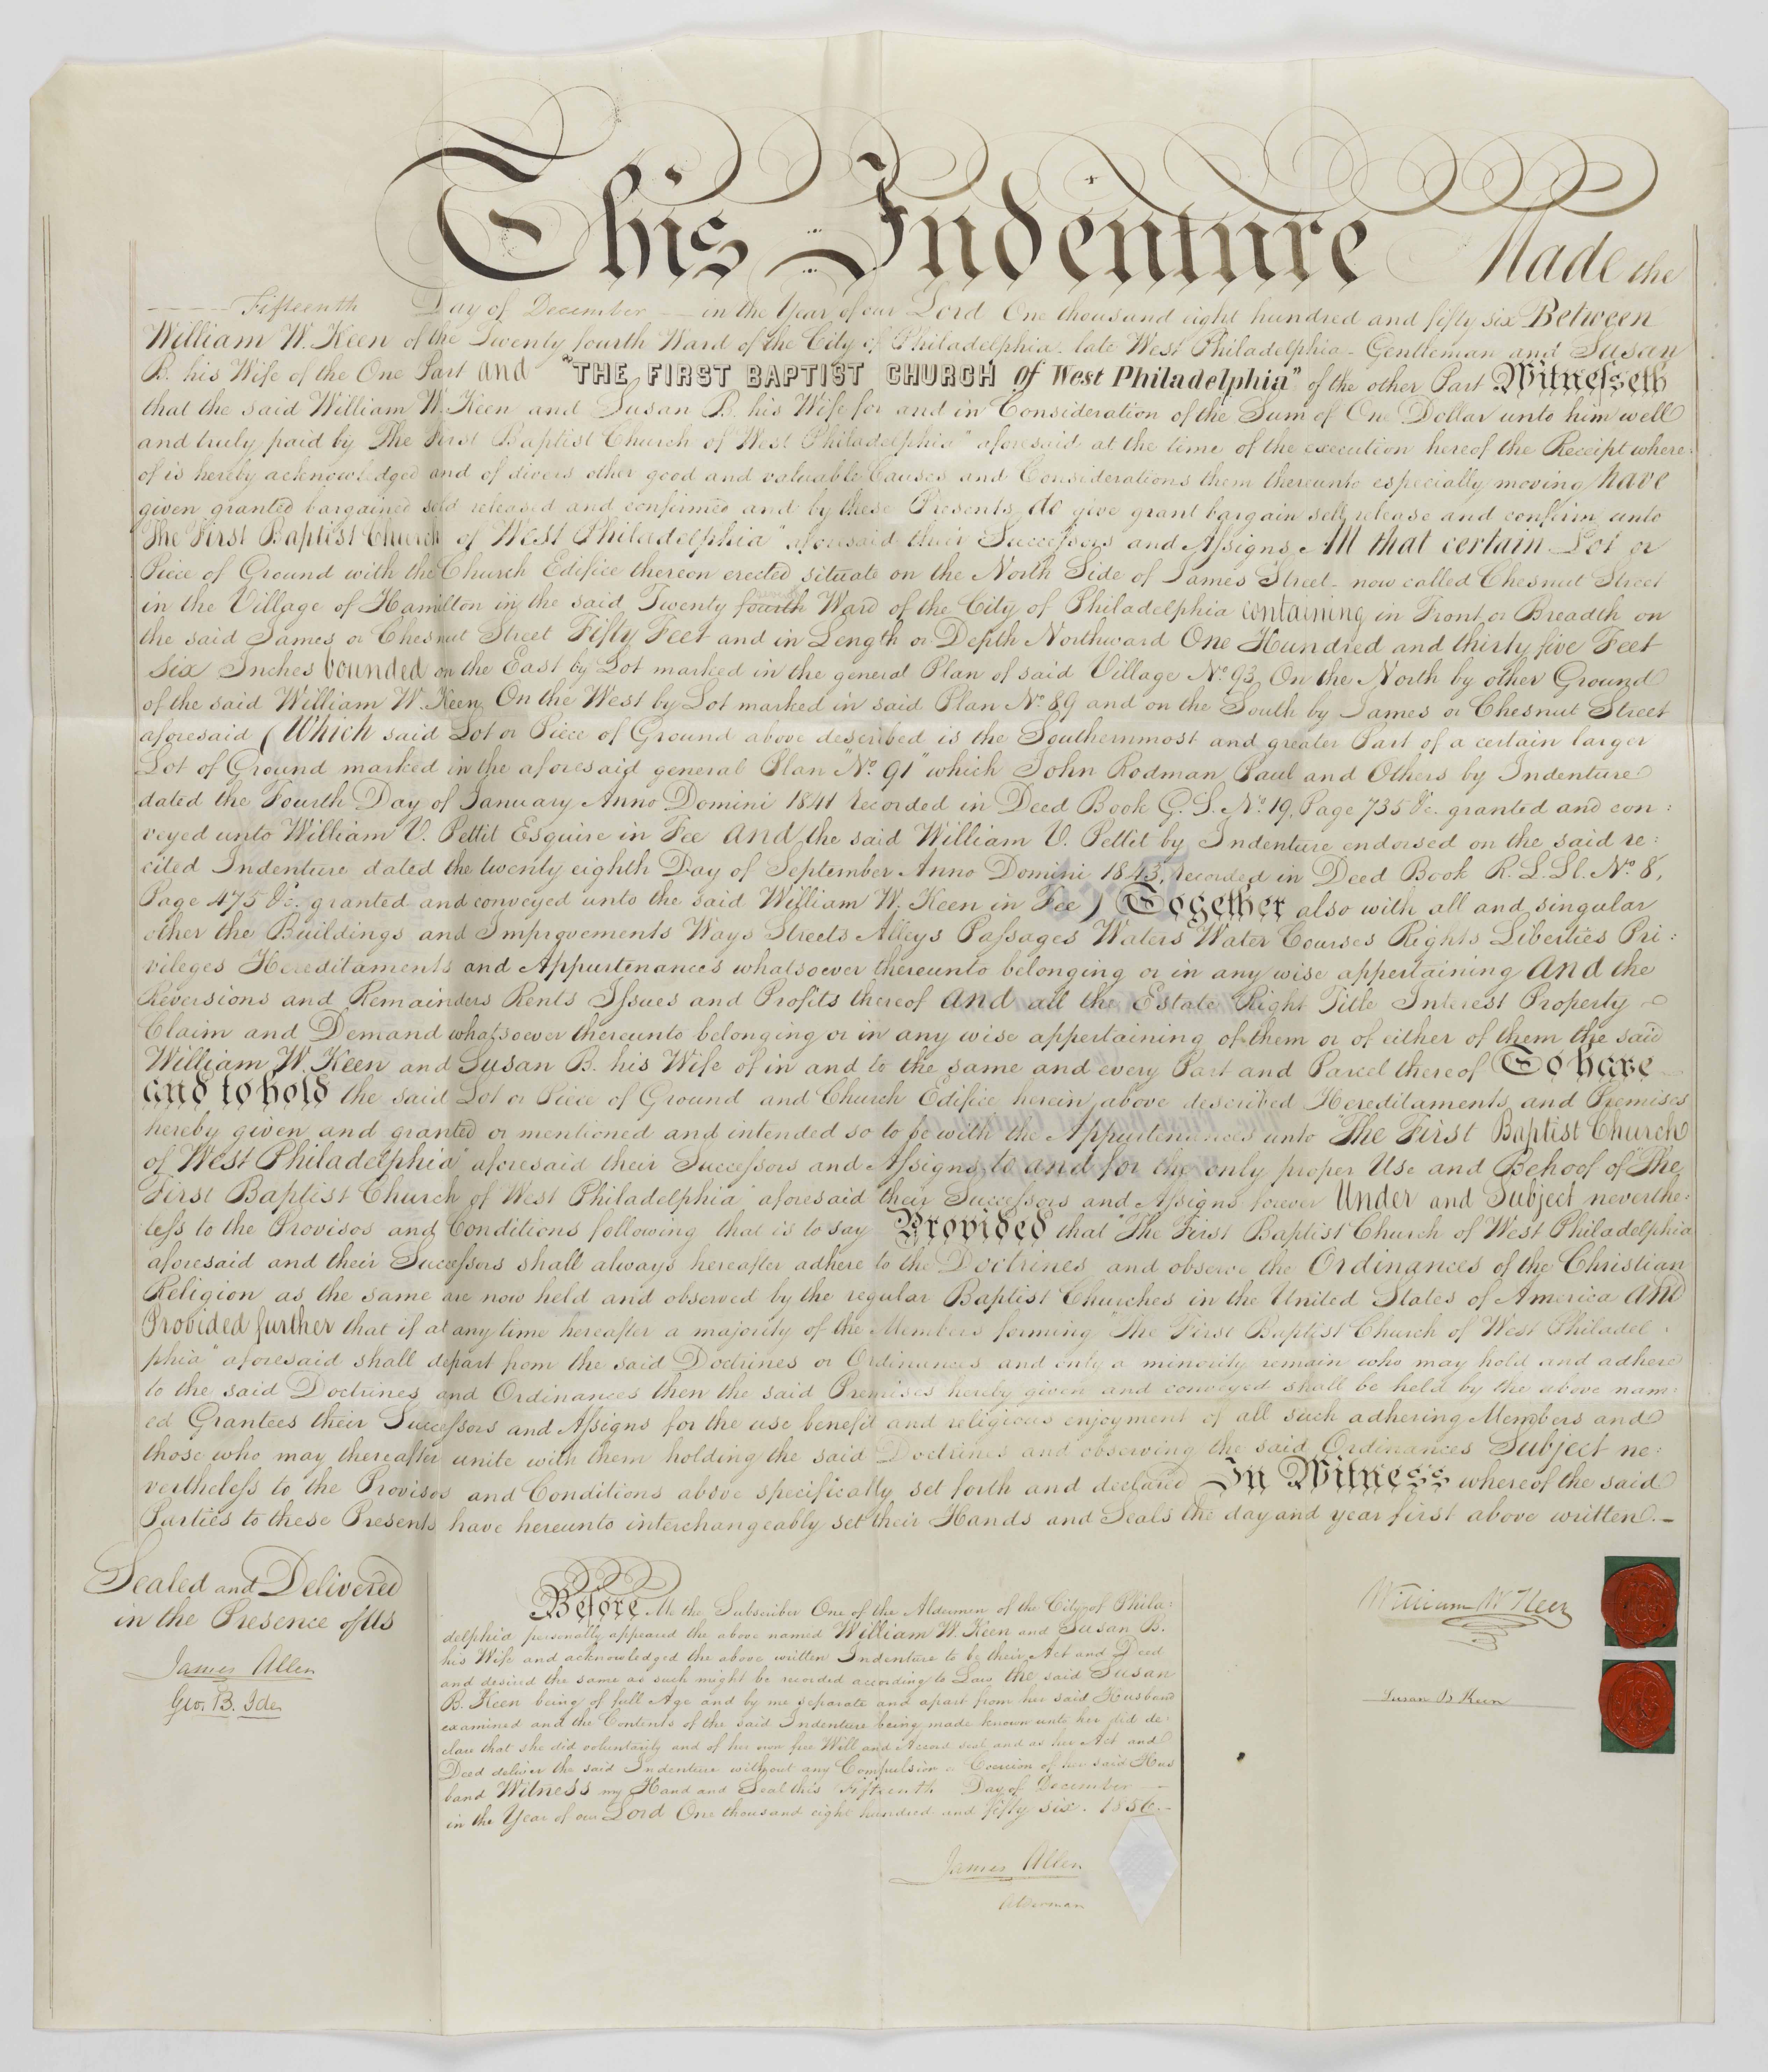 This Indenture Made the
Fifteenth Day of December in the Year of our Lord One thousand eight hundred and fifty six Between
William W. Keen of the Twenty fourth Ward of the City of Philadelphia late West Philadelphia Gentleman and Susan
B. his Wife of the One Part and "THE FIRST BAPTIST CHURCH of West Philadelphia" of the other Part Witnesseth
that the said William W. Keen and Susan B. his Wife for and in Consideration of the Sum of One Dollar unto him well
and truly paid by The First Baptist Church of West Philadelphia" aforesaid at the time of the execution hereof the Receipt where:
of is hereby acknowledged and of divers other good and valuable Causes and Considerations them thereunto especially moving have
given granted bargained sold released and confirmed and by these Presents do give grant bargain sell release and confirm unto
"The First Baptist Church of West Philadelphia" aforesaid their Successors and Assigns All that certain Lot or
Piece of Ground with the Church Edifice thereon erected situate on the North Side of James Street now called Chesnut Street
in the Village of Hamilton in the said Twenty fourth Ward of the City of Philadelphia containing in Front or Breadth on
the said James or Chesnut Street Fifty Feet and in Length or Depth Northward One Hundred and thirty five Feet
Six Inches bounded on the East by Lot marked in the general Plan of said Village No. 93 On the North by other Ground
of the said William W. Keen On the West by Lot marked in said Plan No. 89 and on the South by James or Chesnut Street
aforesaid (Which said Lot or Piece of Ground above described is the Southernmost and greater Part of a certain larger
Lot of Ground marked in the aforesaid general Plan "No. 91" which John Rodman Paul and Others by Indenture
dated the Fourth Day of January Anno Domini 1841 recorded in Deed Book G. S. No. 19, Page 735 &c. granted and con:
veyed unto William V. Pettit Esquire in Fee And the said William V. Pettit by Indenture endorsed on the said re:
cited Indenture dated the twenty eighth Day of September Anno Domini 1843, recorded in Deed Book R. L. Ll. No. 8,
Page 475 &c. granted and conveyed unto the said William W. Keen in Fee) Together also with all and singular
other the Buildings and Improvements Ways Streets Alleys Passages Waters Water Courses Rights Liberties Pri:
vileges Hereditaments and Appurtenances whatsoever thereunto belonging or in any wise appertaining And the
Reversions and Remainders Rents Issues and Profits thereof And all the Estate Right Title Interest Property
Claim and Demand whatsoever thereunto belonging or in any wise appertaining of them or of either of them the said
William W. Keen and Susan B. his Wife of in and to the same and every Part and Parcel thereof To have
and to hold the said Lot or Piece of Ground and Church Edifice herein above described Hereditaments and Premises
hereby given and granted or mentioned and intended so to be with the Appurtenances unto "The First Baptist Church
of West Philadelphia" aforesaid their Successors and Assigns to and for the only proper Use and Behoof of "The
First Baptist Church of West Philadelphia" aforesaid their Successors and Assigns forever Under and Subject neverthe:
less to the Provisos and Conditions following that is to say Provided that "The First Baptist Church of West Philadelphia
aforesaid and their Successors shall always hereafter adhere to the Doctrines and observe the Ordinances of the Christian
Religion as the same are now held and observed by the regular Baptist Churches in the United States of America And
Provided further that if at any time hereafter a majority of the Members forming "The First Baptist Church of West Philadel:
phia" aforesaid shall depart from the said Doctrines or Ordinances and only a minority remain who may hold and adhere
to the said Doctrines and Ordinances then the said Premises hereby given and conveyed shall be held by the above nam:
ed Grantees their Successors and Assigns for the use benefit and religious enjoyment of all such adhering Members and
those who may thereafter unite with them holding the said Doctrines and observing the said Ordinances Subject ne:
vertheless to the Provisos and Conditions above specifically set forth and declared In Witness whereof the said
Parties to these Presents have hereunto interchangeably set their Hands and Seals the day and year first above written.
Sealed and Delivered
in the Presence of Us
James Allen
Geo. B. Ide
Before Me the Subscriber One of the Aldermen of the City of Phila:
delphia personally appeared the above named William W. Keen and Susan B.
his Wife and acknowledged the above written Indenture to be their Act and Deed
and desired the same as such might be recorded according to Law the said Susan
B. Keen being of full Age and by me separate and apart from her said Husband
examined and the Contents of the said Indenture being made known unto her did de:
clare that she did voluntarily and of her own free Will and Accord seal and as her Act and
Deed deliver the said Indenture without any Compulsion or Coercion of her said Hus
band Witness my Hand and Seal this Fifteenth Day of December
in the Year of our Lord One thousand eight hundred and fifty six. 1856.
James Allen
Alderman
William W Keen
Susan B Keen